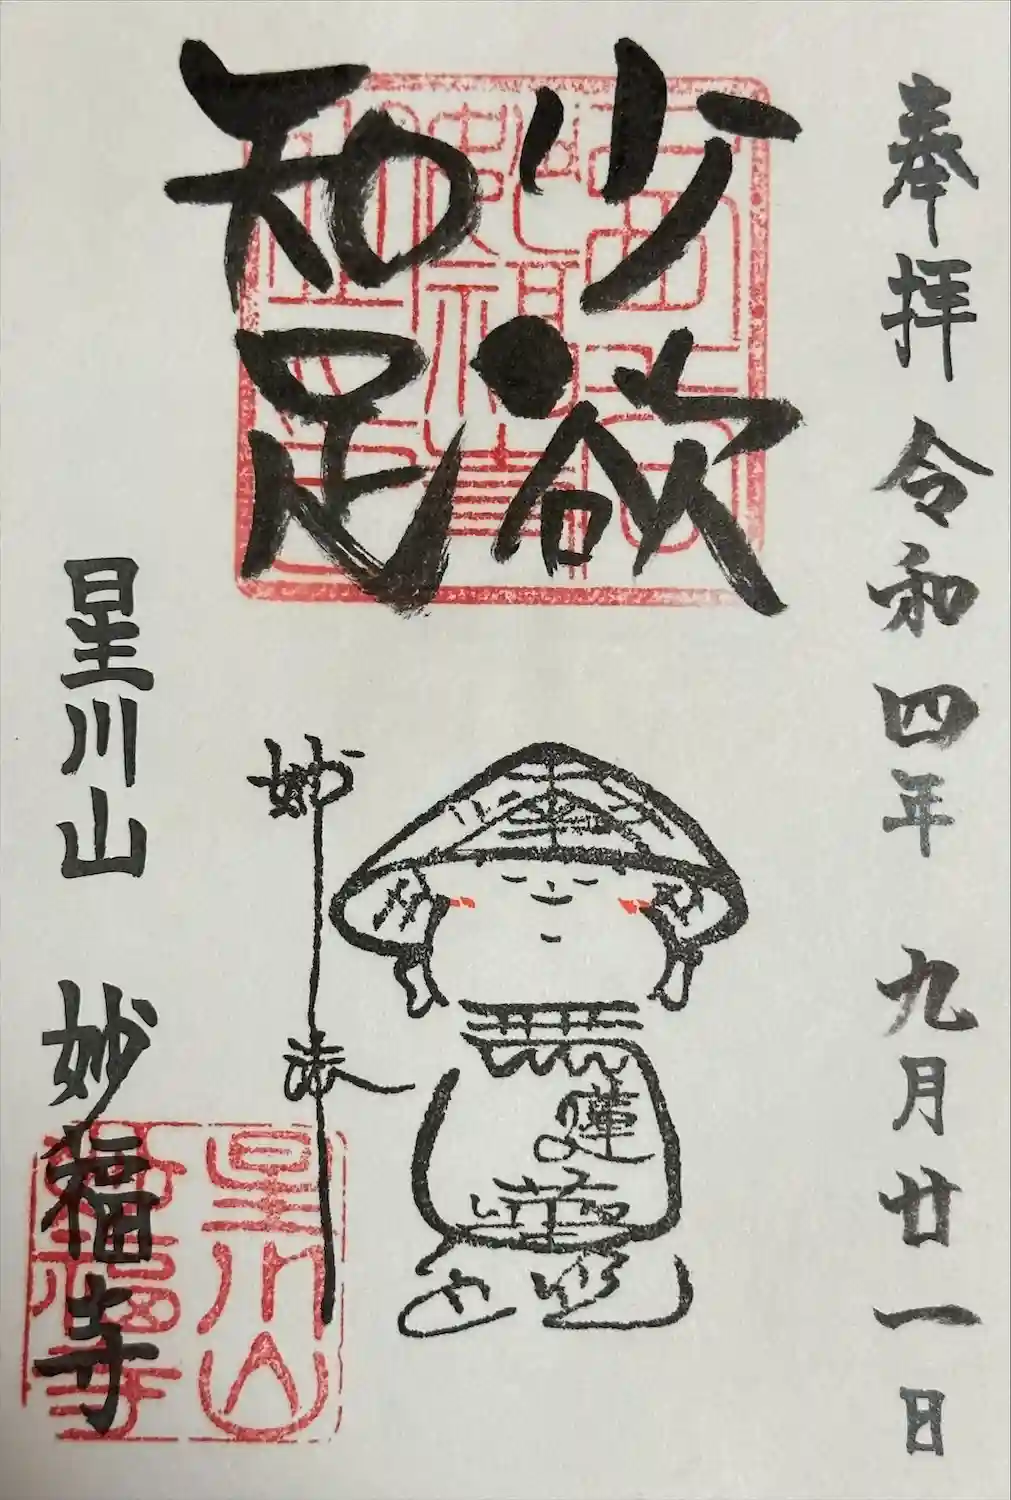 奉拝 令和四年 九月廿一日
少欲
知足
妙
法
蓮
華
星川山 妙福寺
星川山
妙福寺